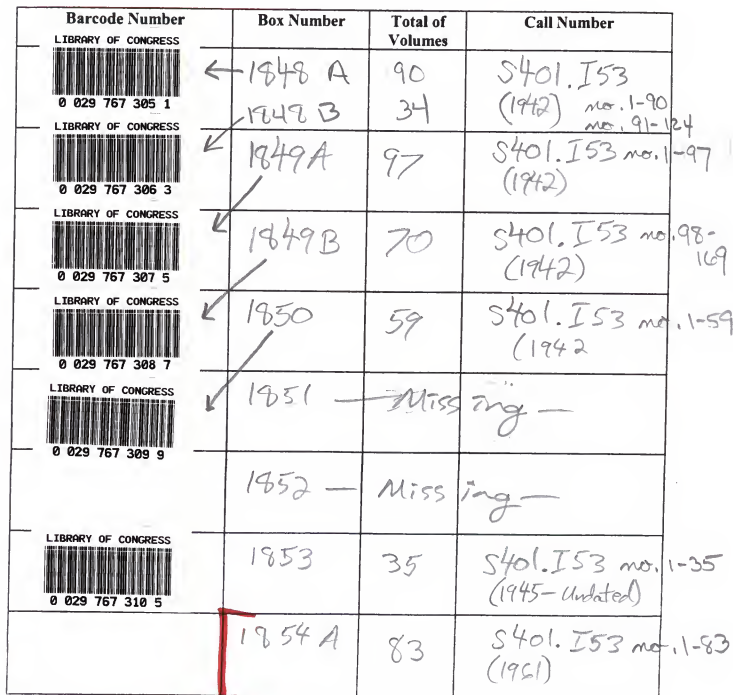 Barcode Number Box Number Total of Volumes Call Number
LIBRARY OF CONGRESS
0 029 767 305 1
1848 A 90 S401.I53
(1942) no. 1-90
1848 B 34 no. 91-124
LIBRARY OF CONGRESS
0 029 767 306 3
1849A 97 S401.I53 no. 1-97
(1942)
LIBRARY OF CONGRESS
0 029 767 307 5
1849B 70 S401.I53 no. 98-
169
(1942)
LIBRARY OF CONGRESS
0 029 767 308 7
1850 59 S401.I53 no. 1-59
(1942
LIBRARY OF CONGRESS
0 029 767 309 9
1851 — Missing —
1852 — Missing —
LIBRARY OF CONGRESS
0 029 767 310 5
1853 35 S401.I53 no. 1-35
(1945-Undated)
1854 A 83 S401.I53 no. 1-83
(1961)